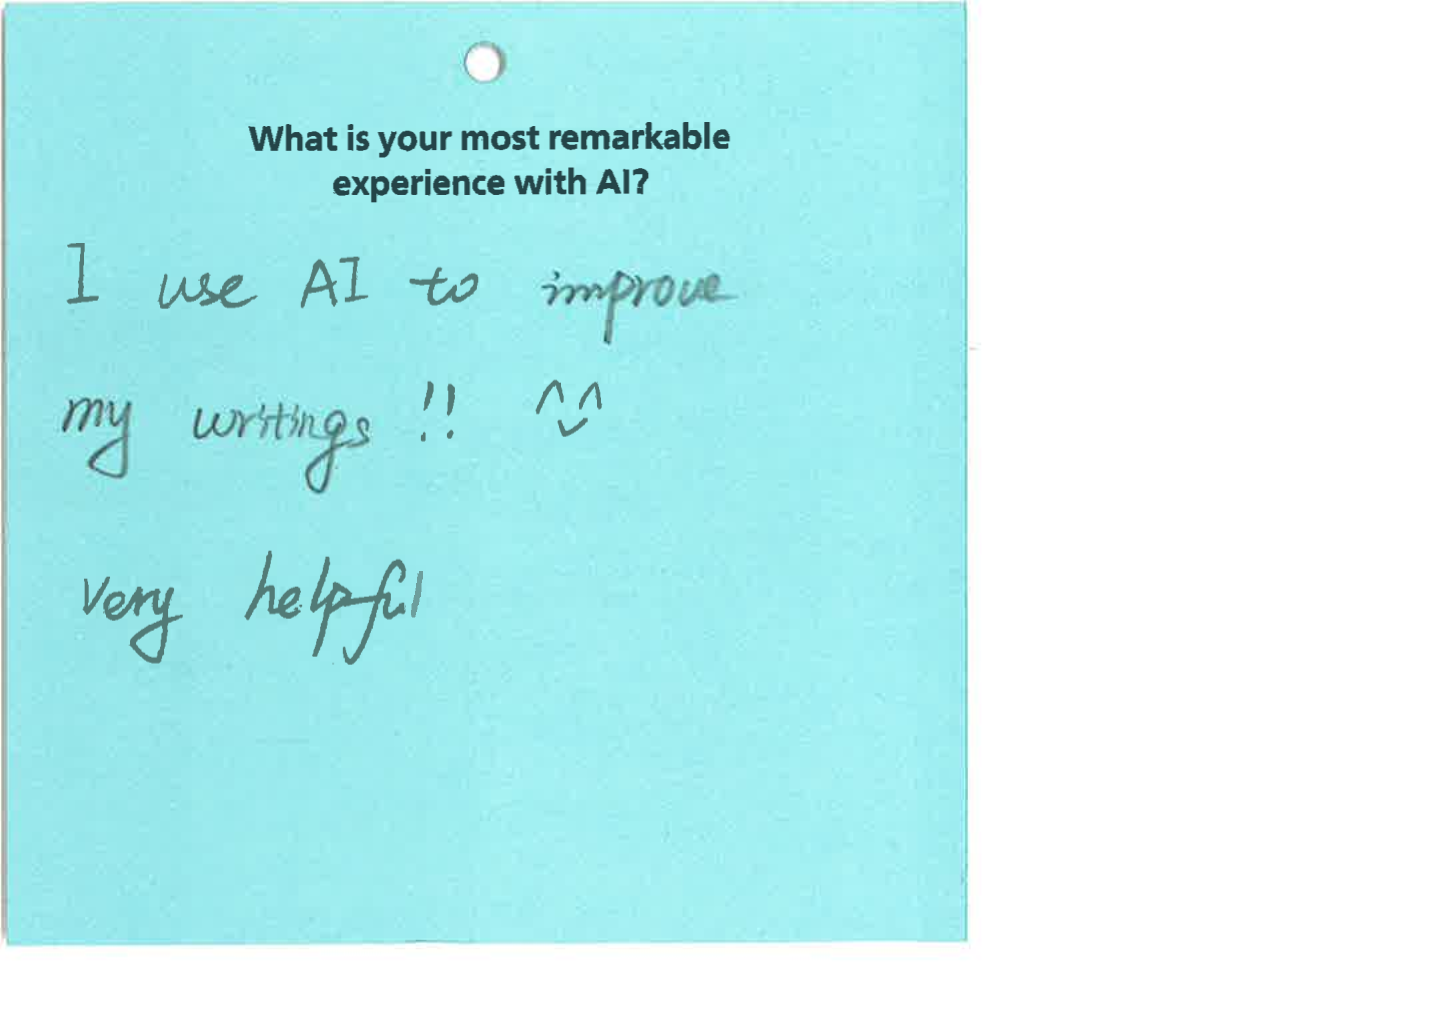 What is your most remarkable
experience with AI?
I use AI to improve
my writings !! ^^
very helpful